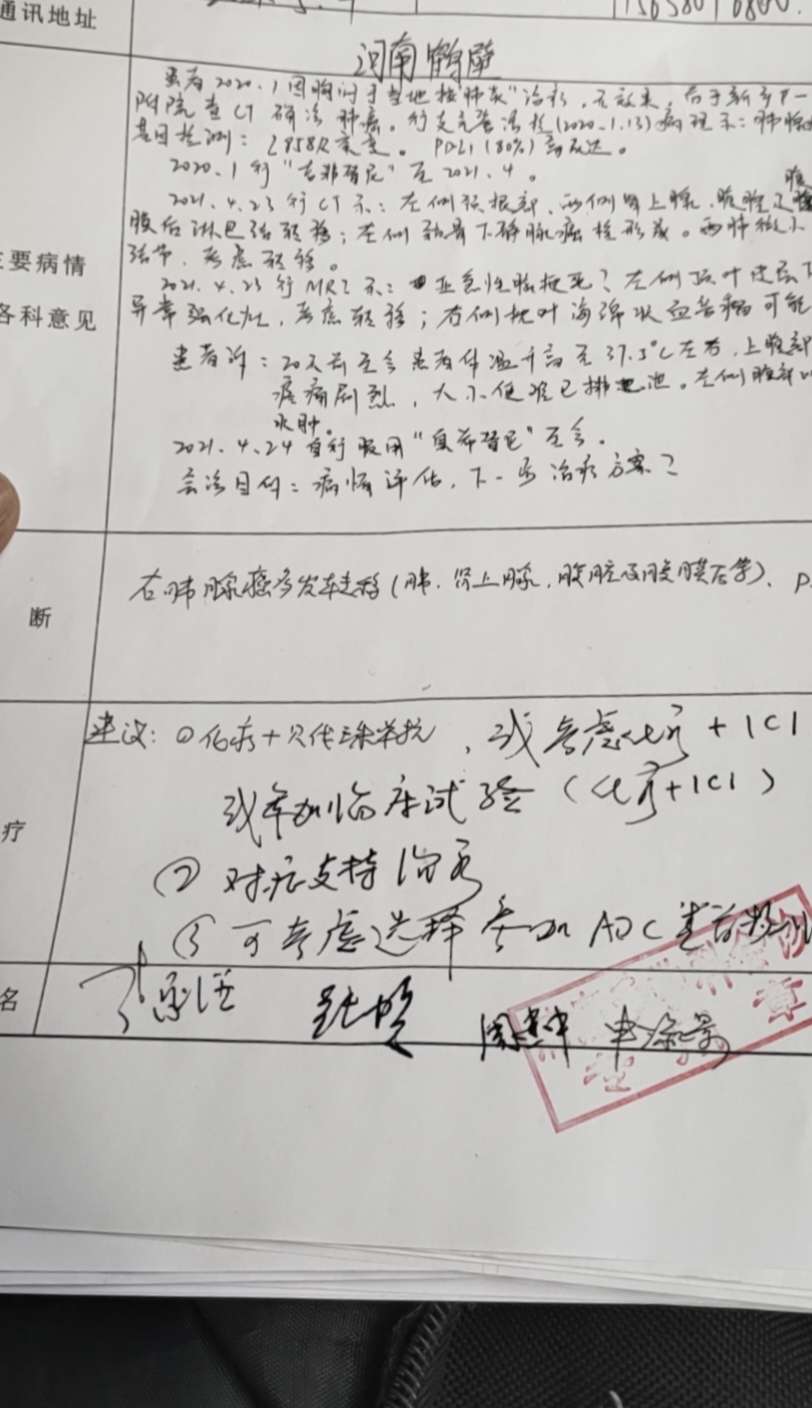 通讯地址
河南鹤壁
患者2020.1因胸闷于当地按"肺炎"治疗,无效果,后于新乡
附院查CT确诊肺癌。行支气管活检(2020.1.13)病理示:肺腺
基因检测:L858R突变。PDL1(80%)高表达。
2020.1行"吉非替尼"至2021.4。
2021.4.23行CT示:左侧颈根部、两侧肾上腺、腹腔及腹
膜后淋巴结转移;左侧静脉癌栓形成。两肺微小
结节,考虑转移。
主要病情
2021.4.23行MRI示:亚急性脑梗死?左侧顶叶皮层下
异常强化灶,考虑转移;右侧枕叶海绵状血管瘤可能
各科意见
患者诉:20天前至今患者体温升高至37.5℃左右,上腹部
疼痛剧烈,大小便难已排
水肿。
2021.4.24自行服用"替尼"至今。
会诊目的:病情评估,下一步治疗方案?
断
右肺腺癌多发转移(肺、肾上腺、腹腔及腹膜后等)、P
建议:①化疗+贝伐珠单抗,或考虑化疗+ICI
或参加临床试验(化疗+ICI)
疗
②对症支持治疗
③可考虑选择参加ADC类药物
名